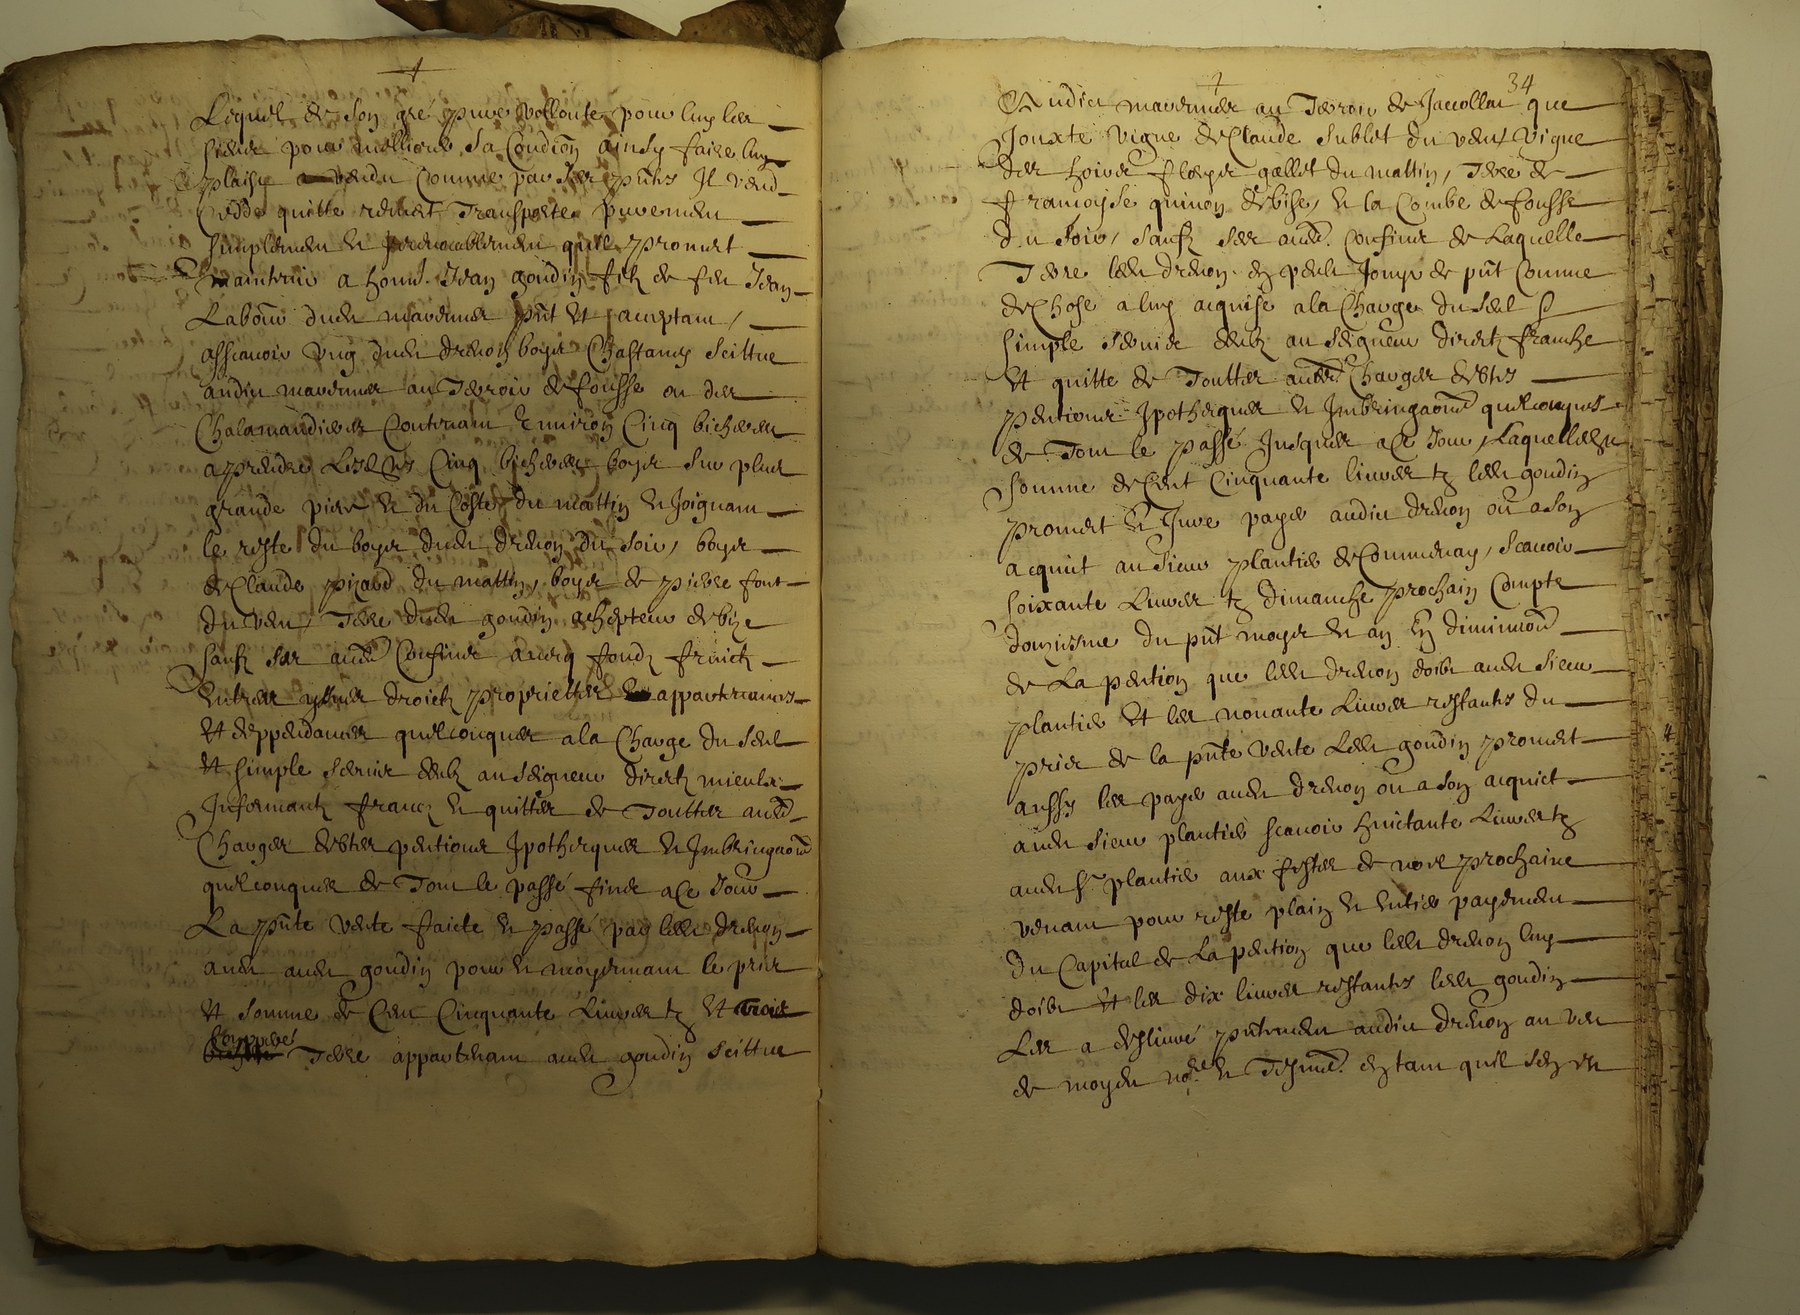 Lequel de son gré pure vollonte pour luy les
siens pour meilleure sa Condiõn ainsy faire luy
plaist a vendu comme par ses pñtes Il vend
Cedde quitte remet Transporte purement
simplement et Irrevocablement quil promet
maintenir a honn. Jean goudin filz de feu Jean
Labour dudit mardenier pñt et acceptant /
assçavoir ung dudit dreuon boys Chastany scittue
audit au Terroir de fousse ou des
Contenant Environ Cinq bicheree
a prendre Cinq bicheree boys sur plus
grande piece et du Coste du mattin et Joignant
le reste du boys dudit dreuon du soir / boys
de Claude pizard du mattin / boys de pierre font
du vent / Terre dudit goudin achepteur de bize
sauf ses Confins avecq fondz fruictz
Entrees yssues droictz proprietter et appartenances
et deppendances quelconques a la Charge du seul
et simple servis deub au seigneur direct mieulx
Informant franc et quittes de Touttes
Charges debtes pentions Ipotheques et
quelconques de Tout le passé finis a Ce Jour
La pñte vente faicte et passé par ledit dreuon
audit goudin pour et moyennant le prix
et somme de Cent Cinquante Livres tz et
Terre appartenant audit goudin scittue
34
Audit au Terroir de Jacollat que
Jouxte vigne de Claude Sublet du vent vigne
des hoirs gellet du mattin / Terre de
francoyse quinon de bise / et la Combe de fousse
du soir / sauf ses Confins de Laquelle
Terre ledit dreuon Jouyr de pñt Comme
de Chose a luy acquise a la Charge du seul
simple servis deub au seigneur direct franche
et quitte de Touttes Charges debtes
pentions Ipotheques et quelconques
de Tout le passé Jusques a Ce Jour / Laquelle
somme de Cent Cinquante livres tz ledit goudin
promet et Jure payer audit dreuon ou a son
acquit au sieur plantier de Communay / scavoir
soixante Livres tz dimanche prochain Compte
douzisme du pñt moys et an En diminuõn
de La pention que ledit dreuon doibt audit sieur
plantier Et les nonante Livres restants du
prix de la pñte vente Ledit goudin promet
aussy les payer audit dreuon ou a son acquict
audit sieur plantier scavoir huictante Livres tz
audit Sr plantier aux festes de noel prochaine
venant pour reste plain et entier payement
du Capital de La pention que ledit dreuon luy
doibt Et les dix livres restants ledit goudin
Les a deslivré pñtement audit dreuon au veu
de moydit et en tant quil